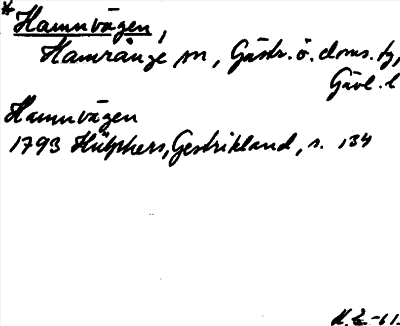 * Hamnvägen,
Hamrånge sn, Gästr. ö. doms. tg,
Gävl. l
Hamnvägen
1793 Hülphers, Gestrikland, s. 134
-61.